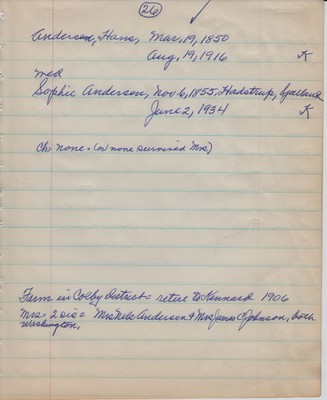 26
Andersen, Hans, Mar. 19, 1850
Aug. 19, 1916 K
med
Sophie Anderson, Nov. 6, 1855, Hadstrup, Sjelland
June 2, 1934 K
Ch: none - (or none survived Mrs)
Farm in Colby District = retire to Kennard 1906
Mrs - 2 sis = Mrs Nels Andersen & Mrs James C Johnson, both
Washington.